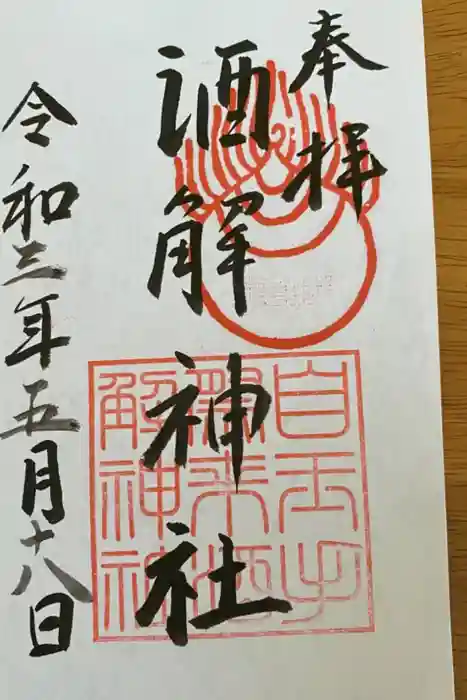 奉拝
酒解神社
令和三年五月十八日
自玉手
祭来酒
解神社